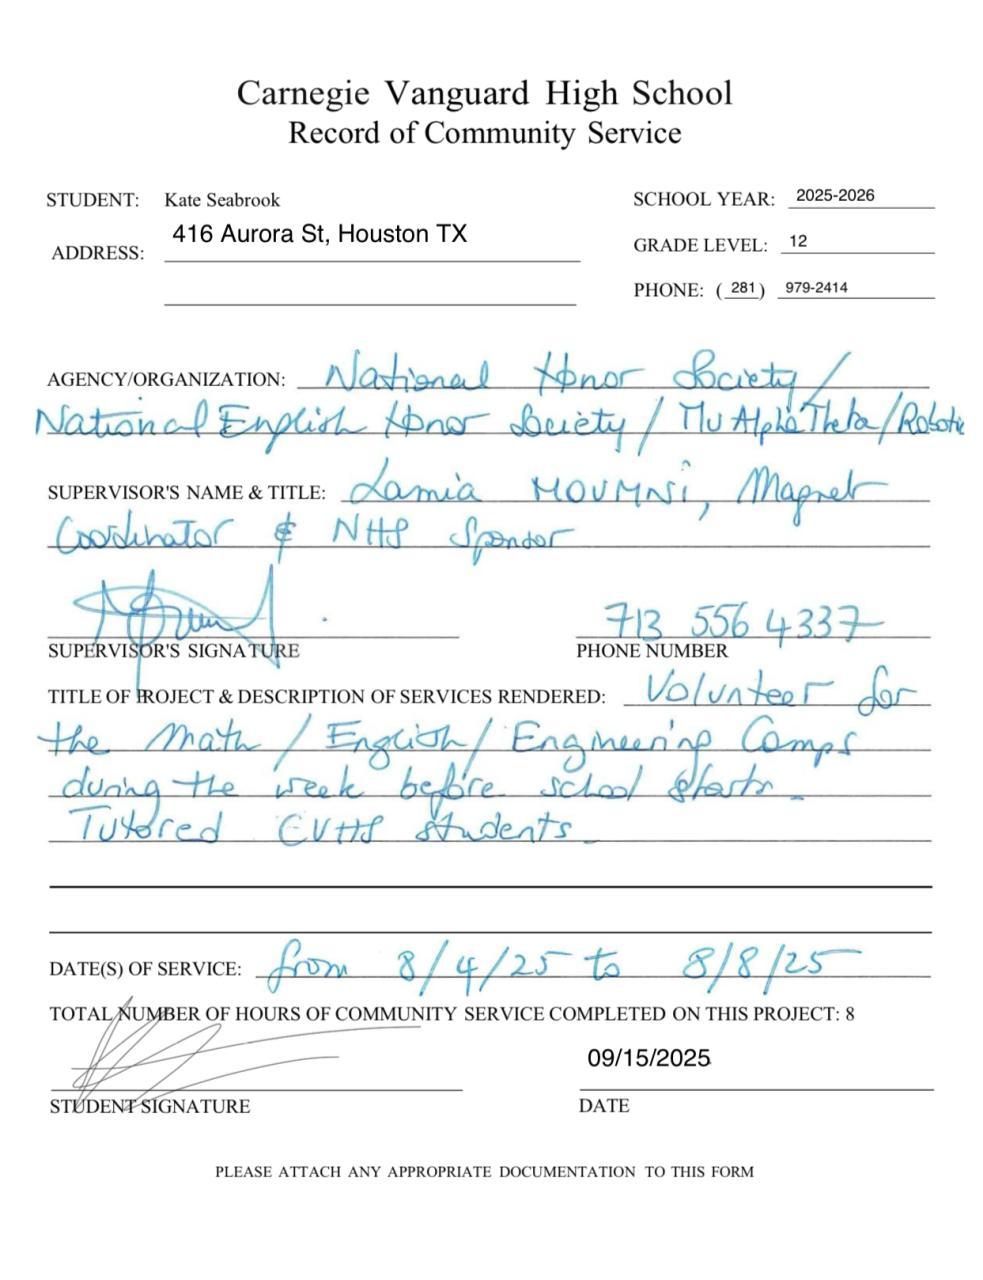 Carnegie Vanguard High School
Record of Community Service
STUDENT: Kate Seabrook
SCHOOL YEAR: 2025-2026
ADDRESS: 416 Aurora St, Houston TX
GRADE LEVEL: 12
PHONE: (281) 979-2414
AGENCY/ORGANIZATION: National Honor Society/
National English Honor Society / Mu Alpha Theta/Robotic
SUPERVISOR'S NAME & TITLE: Lamia MOUMNi, Magnet
Coordinator & NHS Sponsor
713 556 4337
SUPERVISOR'S SIGNATURE PHONE NUMBER
TITLE OF PROJECT & DESCRIPTION OF SERVICES RENDERED: Volunteer for
the Math / English / Engineering Camps
during the week before school starts.
Tutored CVHS students.
DATE(S) OF SERVICE: from 8/4/25 to 8/8/25
TOTAL NUMBER OF HOURS OF COMMUNITY SERVICE COMPLETED ON THIS PROJECT: 8
09/15/2025
STUDENT SIGNATURE DATE
PLEASE ATTACH ANY APPROPRIATE DOCUMENTATION TO THIS FORM